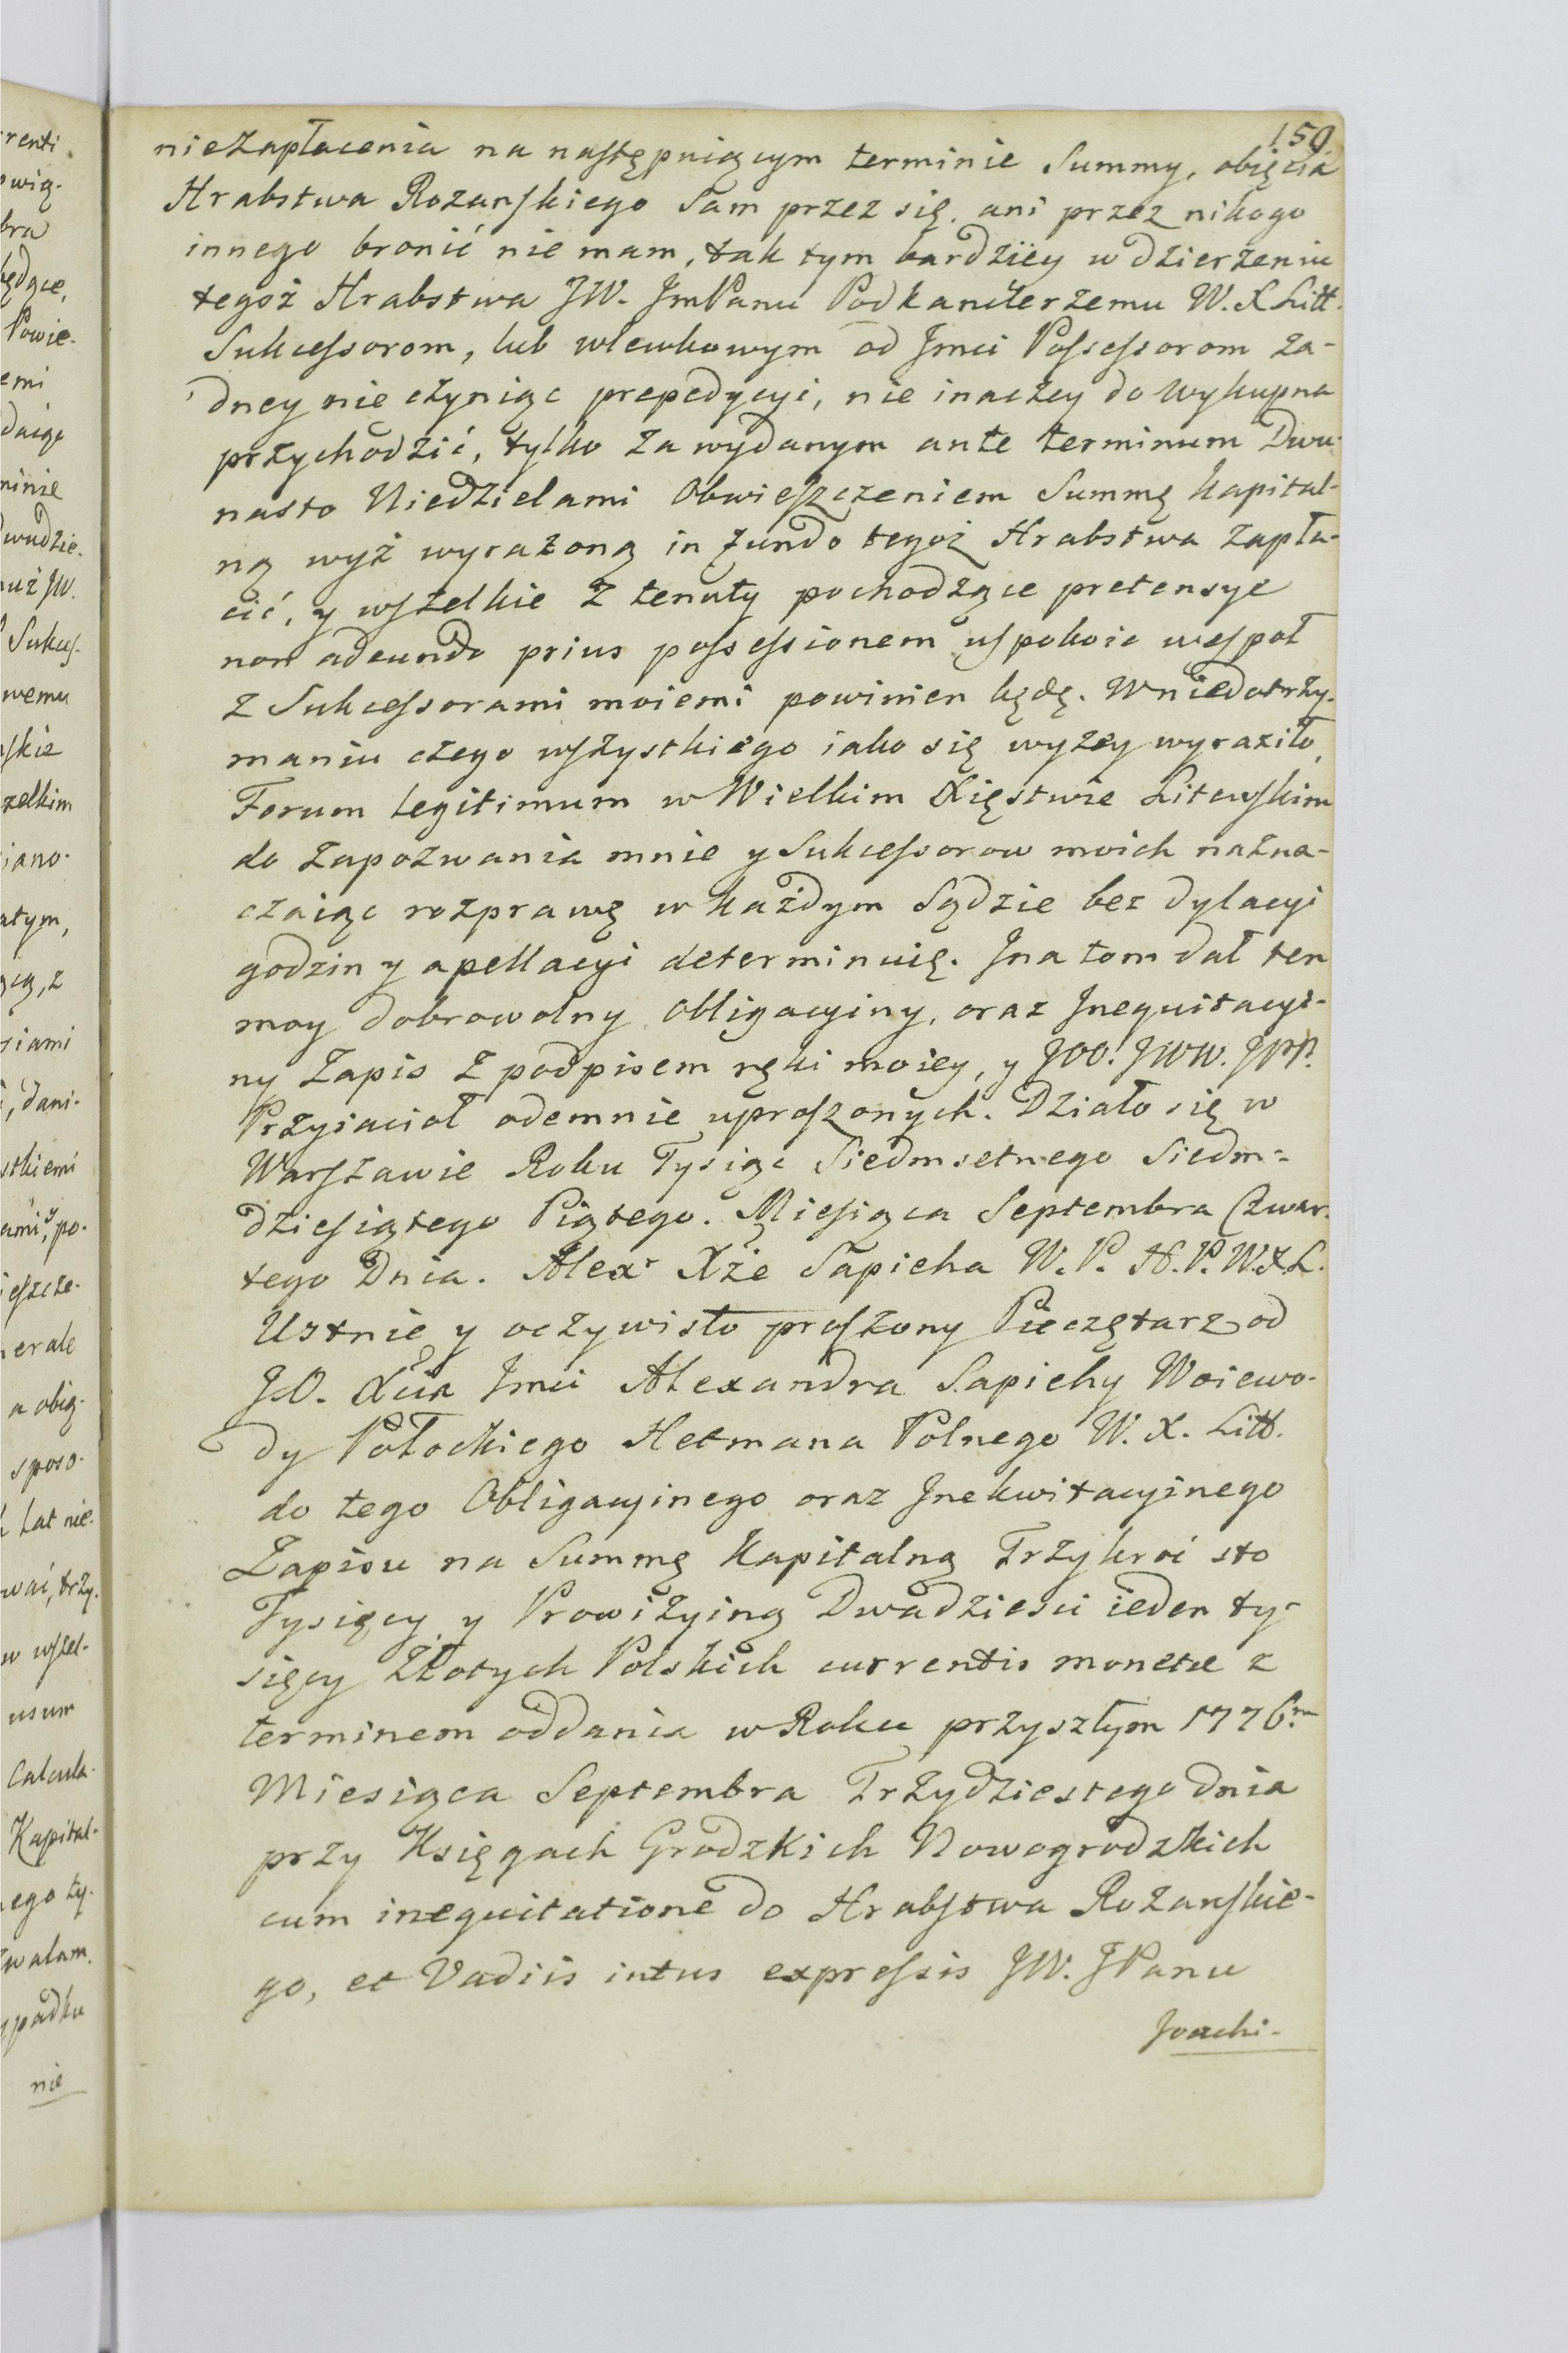 150
niezapłacenia na następuiącym terminie Summy, obięcia
Hrabstwa Rozanskiego Sam przez się, ani przez nikogo
innego bronić nie mam, tak tym bardziey w dzierzeniu
tegoż Hrabstwa JW. JmPanu Podkanclerzemu W. X Litt.
Sukcessorom, lub wlewkowym od Jmci Possessorom za-
dney nie czyniąc prepedycyi, nie inaczey do wykupna
przychodzić, tylko za wydanym ante terminum Dwu-
nasto Niedzielami Obwieszczeniem Summę Kapital-
ną wyż wyrażoną in fundo tegoż Hrabstwa zapła-
cić, y wszelkie z tenuty pochodzące pretensye
non adeundo prius possessionem uspokoic wespoł
z Sukcessorami moiemi powinien będę. W niedotrzy-
maniu czego wszystkiego iako się wyzey wyraziło,
Forum legitimum w Wielkim Xięstwie Litewskim
do zapozwania mnie y Sukcessorow moich nazna-
czaiąc rozprawę w każdym Sądzie bez dylacyi
godzin y apellacyi determinuię. Jna tom dał ten
moy dobrowolny obligacyiny, oraz Jnequitacyi-
ny Zapis z podpisem ręki moiey, y JOO. JWW. JPP.
Przyiacioł odemnie uproszonych. Działo się w
Warszawie Roku Tysiąc Siedmsetnego Siedm-
dziesiątego Piątego. Miesiąca Septembra Czwar-
tego Dnia. Alexr Xże Sapieha W. P. H. P. W. X. L.
Ustnie y oczywisto proszony Pieczętarz od
J.O. Xcia Jmci Alexandra Sapiehy Woiewo-
dy Połockiego Hetmana Polnego W. X. Litt.
do tego Obligacyinego oraz Jnekwitacyinego
Zapisu na Summę Kapitalną Trzykroć sto
Tysięcy y Prowizyiną Dwadziescia ieden ty-
sięcy Złotych Polskich currentis monetæ z
terminem oddania w Roku przyszłym 1776m
Miesiąca Septembra Trzydziestego dnia
przy Księgach Grodzkich Nowogrodzkich
cum inequitatione do Hrabstwa Rozanskie-
go, et Vadiis intus expressis JW. JPanu
Joachi-